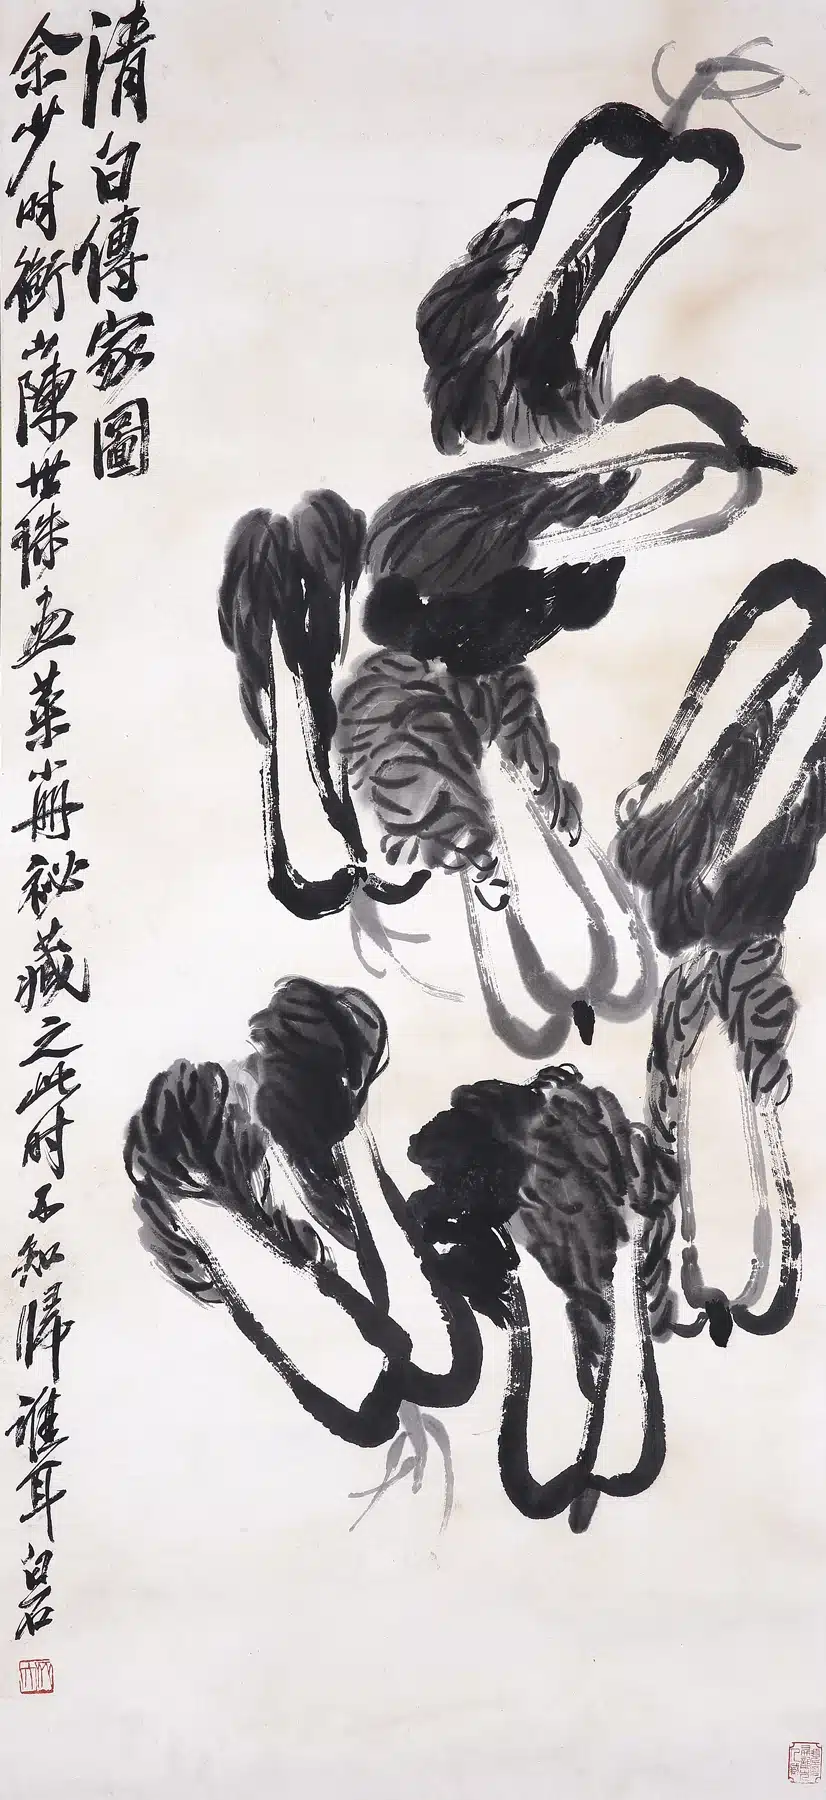 清白傳家圖
余少时衡山陳世珠画菜小册祕藏之此时不知歸誰耳白石